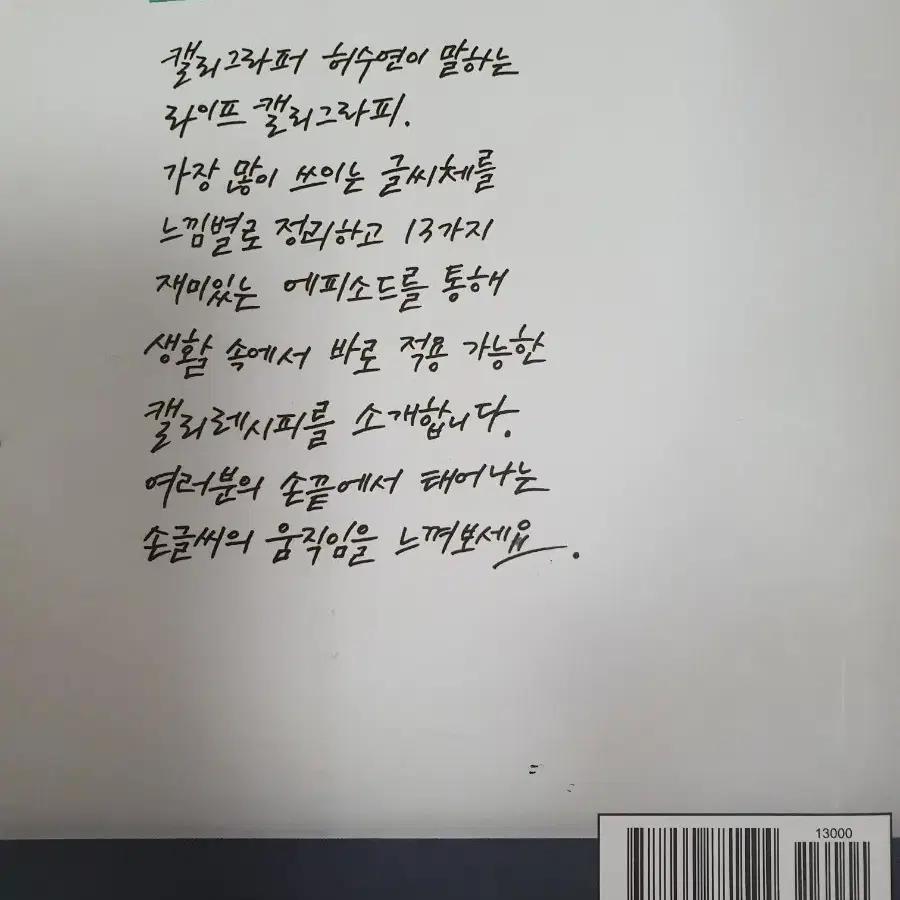 캘리그라퍼 허수연이 말하는
라이프 캘리그라피.
가장 많이 쓰이는 글씨체를
느낌별로 정리하고 13가지
재미있는 에피소드를 통해
생활 속에서 바로 적용 가능한
캘리레시피를 소개합니다.
여러분의 손끝에서 태어나는
손글씨의 움직임을 느껴보세요.
13000